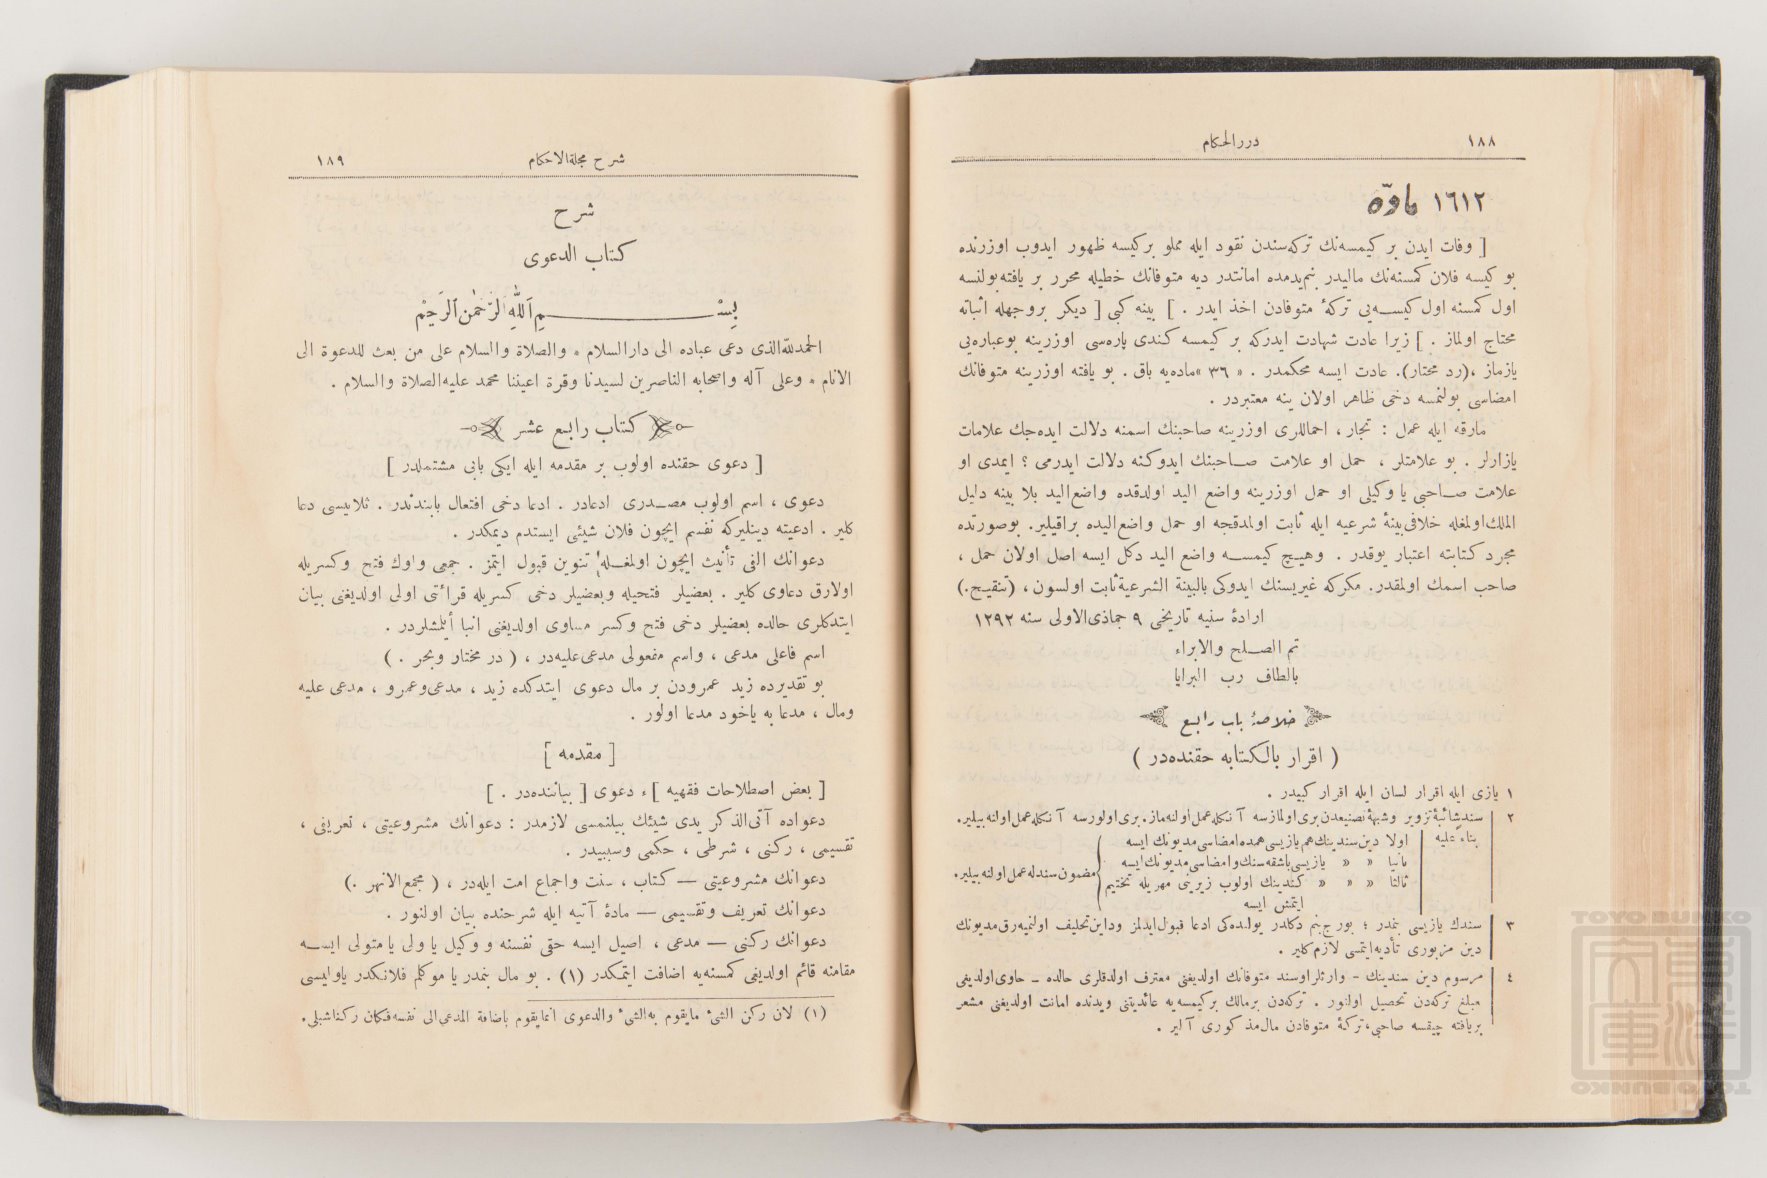 ١٨٨
دررالحكام
١٦١٢ مادّه
[ وفات ايدن بر كيمسه‌نك تركه‌سندن نقود ايله مملو بركيسه ظهور ايدوب اوزرنده
بو كيسه فلان كمسنه‌نك ماليدر بنم‌يدمده امانتدر ديه متوفانك خطيله محرر بر يافته‌بولنسه
اول كمسنه اول كيســه‌يى تركۀ متوفادن اخذ ايدر . ] بينه كبى [ ديكر بروجهله اثباته
محتاج اولماز . ] زيرا عادت شهادت ايدركه بر كيمسه كندى پاره‌سى اوزرينه بوعباره‌يى
يازماز ،(رد محتار). عادت ايسه محكمدر . « ٣٦ »ماده‌يه باق . بو يافته اوزرينه متوفانك
امضاسى بولنمسه دخى ظاهر اولان ينه معتبردر .
مارقه ايله عمل : تجار ، احماللرى اوزرينه صاحبنك اسمنه دلالت ايده‌جك علامات
يازارلر . بو علامتلر ، حمل او علامت صــاحبنك ايدوكنه دلالت ايدرمى ؟ ايمدى او
علامت صــاحبى يا وكيلى او حمل اوزرينه واضع اليد اولدقده واضع‌اليد بلا بينه دليل
الملك‌اولمغله خلافى‌بينۀ شرعيه ايله ثابت اولمدقجه او حمل واضع‌اليده براقيلير. بوصورتده
مجرد كتابته اعتبار يوقدر . وهيــچ كيمســه واضع اليد دكل ايسه اصل اولان حمل ،
صاحب اسمك اولمقدر. مكركه غيريسنك ايدوكى بالبينة الشرعية‌ثابت اولسون ، (تنقيح.)
ارادۀ سنيه تاريخى ٩ جماذى‌الاولى سنه ١٢٩٢
تم الصــلح والابراء
بالطاف رب البرايا
خلاصۀ باب رابع
( اقرار بالكتابه حقنده‌در )
١ يازى ايله اقرار لسان ايله اقرار كبيدر .
٢ سندشائبۀ تزوير وشبهۀ تصنيعدن برى اولمازسه آنكله عمل اولنه‌ماز. برى اولورسه آنكله عمل اولنه بيلير.
بناءً عليه
اولا دين سندينك هم يازيسى همده امضاسى مديونك ايسه
ثانيا » » يازيسى باشقه‌سنك وامضاسى مديونك ايسه
ثالثا » » » كندينك اولوب زيرينى مهريله تختيم
ايتمش ايسه
مضمون سندله عمل اولنه بيلير.
٣ سندك يازيسى بنمدر ؛ بورج بنم دكلدر يولنده‌كى ادعا قبول ايدلمز وداين تحليف اولنميه‌رق مديونك
دين مزبورى تأديه ايتمسى لازم كلير .
٤ مرسوم دين سندينك - وارثلر اوسند متوفانك اولديغنى معترف اولدقلرى حالده - حاوى اولديغى
مبلغ تركه‌دن تحصيل اولنور . تركه‌دن برمالك بر كيمسه‌يه عائديتنى ويدنده امانت اولديغنى مشعر
بريافته چيقسه صاحبى،تركۀ متوفادن مال مذكورى آلير .
شرح مجلةالاحكام
١٨٩
شرح
كتاب الدعوى
بِسْــــــمِ اللّٰهِ الرَّحْمٰنِ الرَّحِيْمِ
الحمدللّه‌الذى دعى عباده الى دارالسلام * والصلاة والسلام على من بعث للدعوة الى
الانام * وعلى آله واصحابه الناصرين لسيدنا وقرة اعيننا محمد عليه‌الصلاة والسلام .
كتاب رابع عشر
[ دعوى حقنده اولوب بر مقدمه ايله ايكى بابى مشتملدر ]
دعوى ، اسم اولوب مصــدرى ادعادر . ادعا دخى افتعال بابندندر . ثلاثيسى دعا
كلير . ادعيته دينليركه نفسم ايچون فلان شيئى ايستدم ديمكدر .
دعوانك الفى تأنيث ايچون اولمغــله تنوين قبول ايتمز . جمعى واوك فتح وكسريله
اولارق دعاوى كلير . بعضيلر فتحيله وبعضيلر دخى كسريله قرائتى اولى اولديغنى بيان
ايتدكلرى حالده بعضيلر دخى فتح وكسر مساوى اولديغنى انبا أيلمشلردر .
اسم فاعلى مدعى ، واسم مفعولى مدعى‌عليه‌در ، ( در مختار وبحر . )
بو تقديرده زيد عمرودن بر مال دعوى ايتدكده زيد ، مدعى‌وعمرو ، مدعى عليه
ومال ، مدعا به ياخود مدعا اولور .
[ مقدمه ]
[ بعض اصطلاحات فقهيه ]ء دعوى [ بياننده‌در . ]
دعواده آتى‌الذكر يدى شيئك بيلنمسى لازمدر : دعوانك مشروعيتى ، تعريفى ،
تقسيمى ، ركنى ، شرطى ، حكمى وسببيدر .
دعوانك مشروعيتى — كتاب ، سنت واجماع امت ايله‌در ، ( مجمع‌الانهر .)
دعوانك تعريف وتقسيمى — مادۀ آتيه ايله شرحنده بيان اولنور .
دعوانك ركنى — مدعى ، اصيل ايسه حقى نفسنه و وكيل يا ولى يا متولى ايســه
مقامنه قائم اولديغى كمسنه‌يه اضافت ايتمكدر (١) . بو مال بنمدر يا موكلم فلانكدر ياوايسى
(١) لان ركن الشىٔ مايقوم به‌الشىٔ والدعوى انمايقوم باضافة المدعى‌الى نفسه‌فكان ركنا‌شبلى.